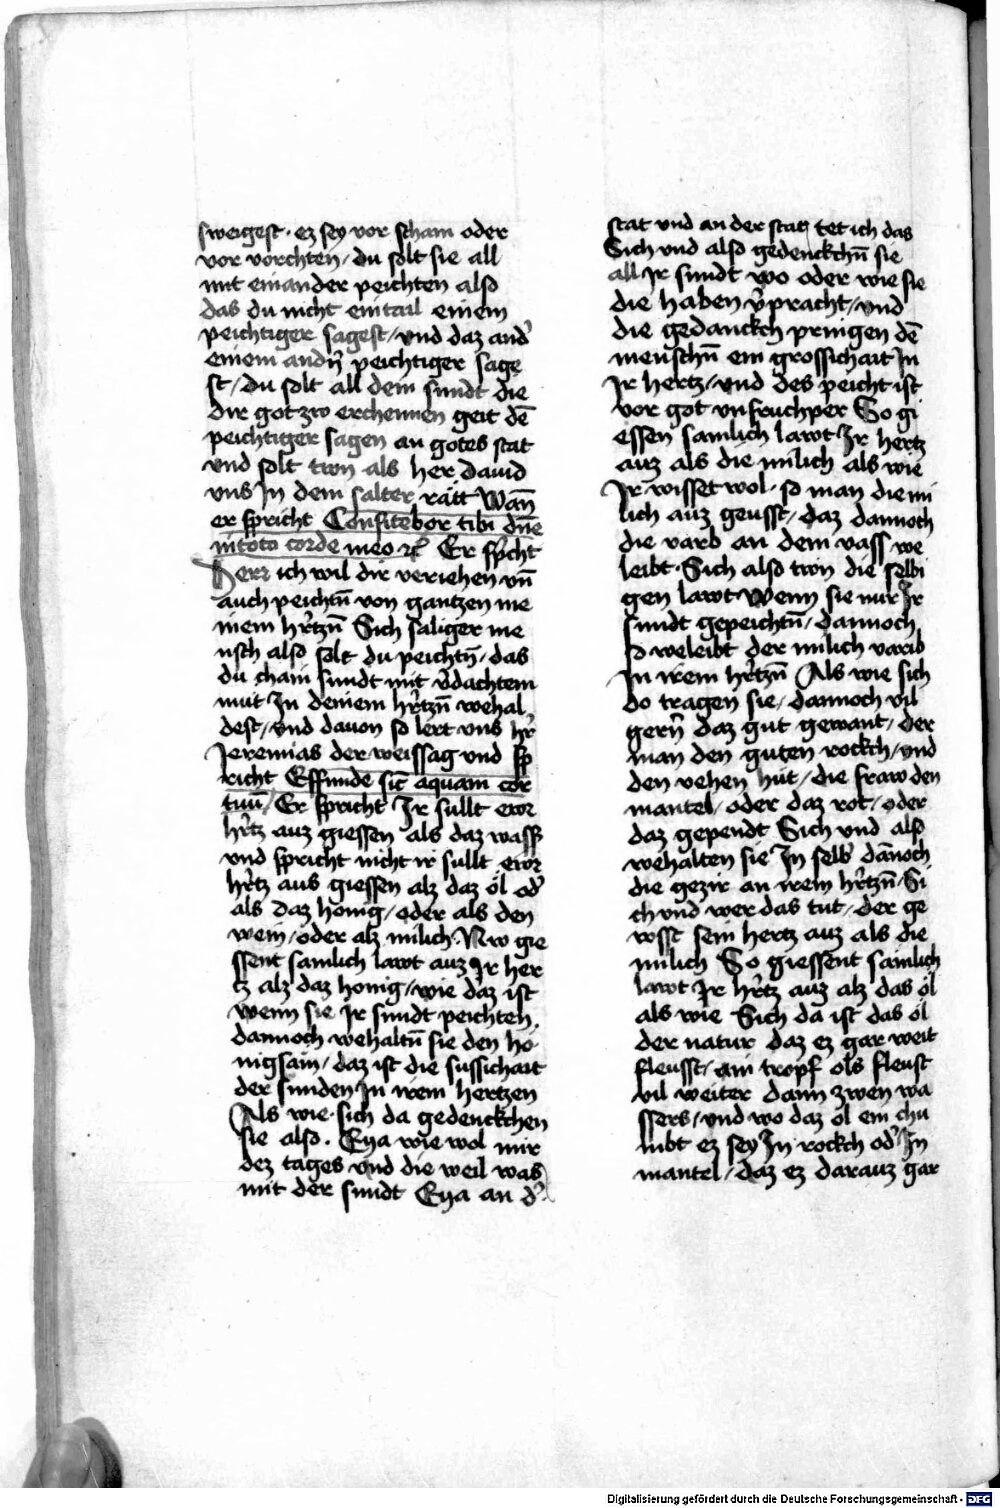 sweigest · ez sey vor scham oder
vor vorchten / du solt sie all
mit einander peichten also
das du nicht ein tail einem
peichtiger sagest / und daz and'
einem andn̄ peichtiger sage
st / du solt all dein sundt die
dir got zw erchennen geit dē
peichtiger sagen an gotes stat
und solt twn als her david
uns In dem salter rått Wan̄
er spricht Confitebor tibi dn̄e
in toto corde meo ꝛc̄ Er sp̄cht
Herr ich wil dir veriehen vn̄
auch peichtn̄ von gantzen me
inem h'rtzn̄ Sich saliger me
nsch also solt du peichtn̄ / das
du chain sundt mit v'dachtem
mut In deinem h'rtzn̄ wehal
dest / und davon so lert uns h'r
Jeremias der weissag und sp
richt Effunde sic̄ aquam cor
tuū / Er spricht Ir sullt ewr
h'rtz auz giessen als daz wass'
und spricht nicht ir sullt ewr
h'rtz aus giessen alz daz öl od'
als daz honig / oder als den
wein / oder alz milich · Nw gie
ssent samlich lawt auz Ir her
tz alz daz honig / wie daz ist
wenn sie Ir sundt peichten
dannoch wehaltn̄ sie den hö
nigsam / daz ist die sussichait
der sunden In irem hertzen
Als wie · sich da gedenckchen
sie also . Eya wie wol mir
dez tages und die weil was
mit der sundt Eya an d'
stat und an der stat tet ich das
Sich und also gedenckchn̄ sie
all Ir sundt wo oder wie sie
die haben v'pracht / und
die gedanckch pringen dē
menschn̄ ein grossichait In
Ir hertz / und des peicht ist
vor got unfruchper So gi
essen samlich lawt Ir hertz
auz als die milich als wie
Ir wisset wol · so man die mi
lich auz geusst / daz dannoch
die varb an dem vass we
leibt · Sich also twn die selbi
gen lawt Wenn sie nur Ir
sundt gepeichtn̄ / dannoch
so weleibt der milich varib
In irem h'rtzn̄ Als wie sich
do tragen sie / dannoch vil
gern̄ daz gut gewant / der
man den guten rockch / und
den vehen hut / die fraw den
mantel / oder daz rot / oder
daz gependt Sich und also
wehalten sie In selb' dan̄och
die gezir an irem h'rtzn̄ · Si
ch und wer das tut / der ge
wsst sein hertz auz als die
milich So giessent samlich
lawt Ir h'rtz auz alz das öl
als wie Sich da ist das öl
der natur daz ez gar weit
fleusst / ain tropf öls fleust
vil weiter dann zwen wa
ssers / und wo daz öl ein chu
mbt ez sey In rockch od' In
mantel / daz ez darauz gar
Digitalisierung gefördert durch die Deutsche Forschungsgemeinschaft - DFG